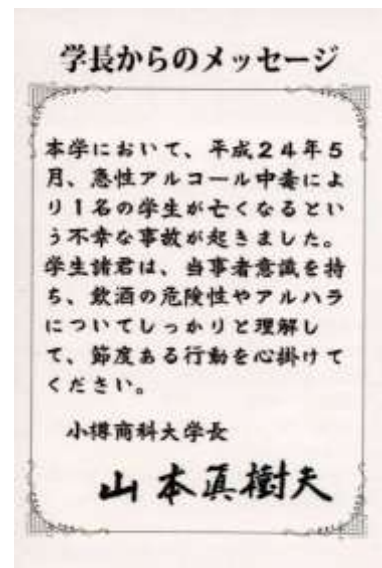 学長からのメッセージ
本学において、平成24年5
月、急性アルコール中毒によ
り1名の学生が亡くなるとい
う不幸な事故が起きました。
学生諸君は、当事者意識を持
ち、飲酒の危険性やアルハラ
についてしっかりと理解し
て、節度ある行動を心掛けて
ください。
小樽商科大学長
山本眞樹夫